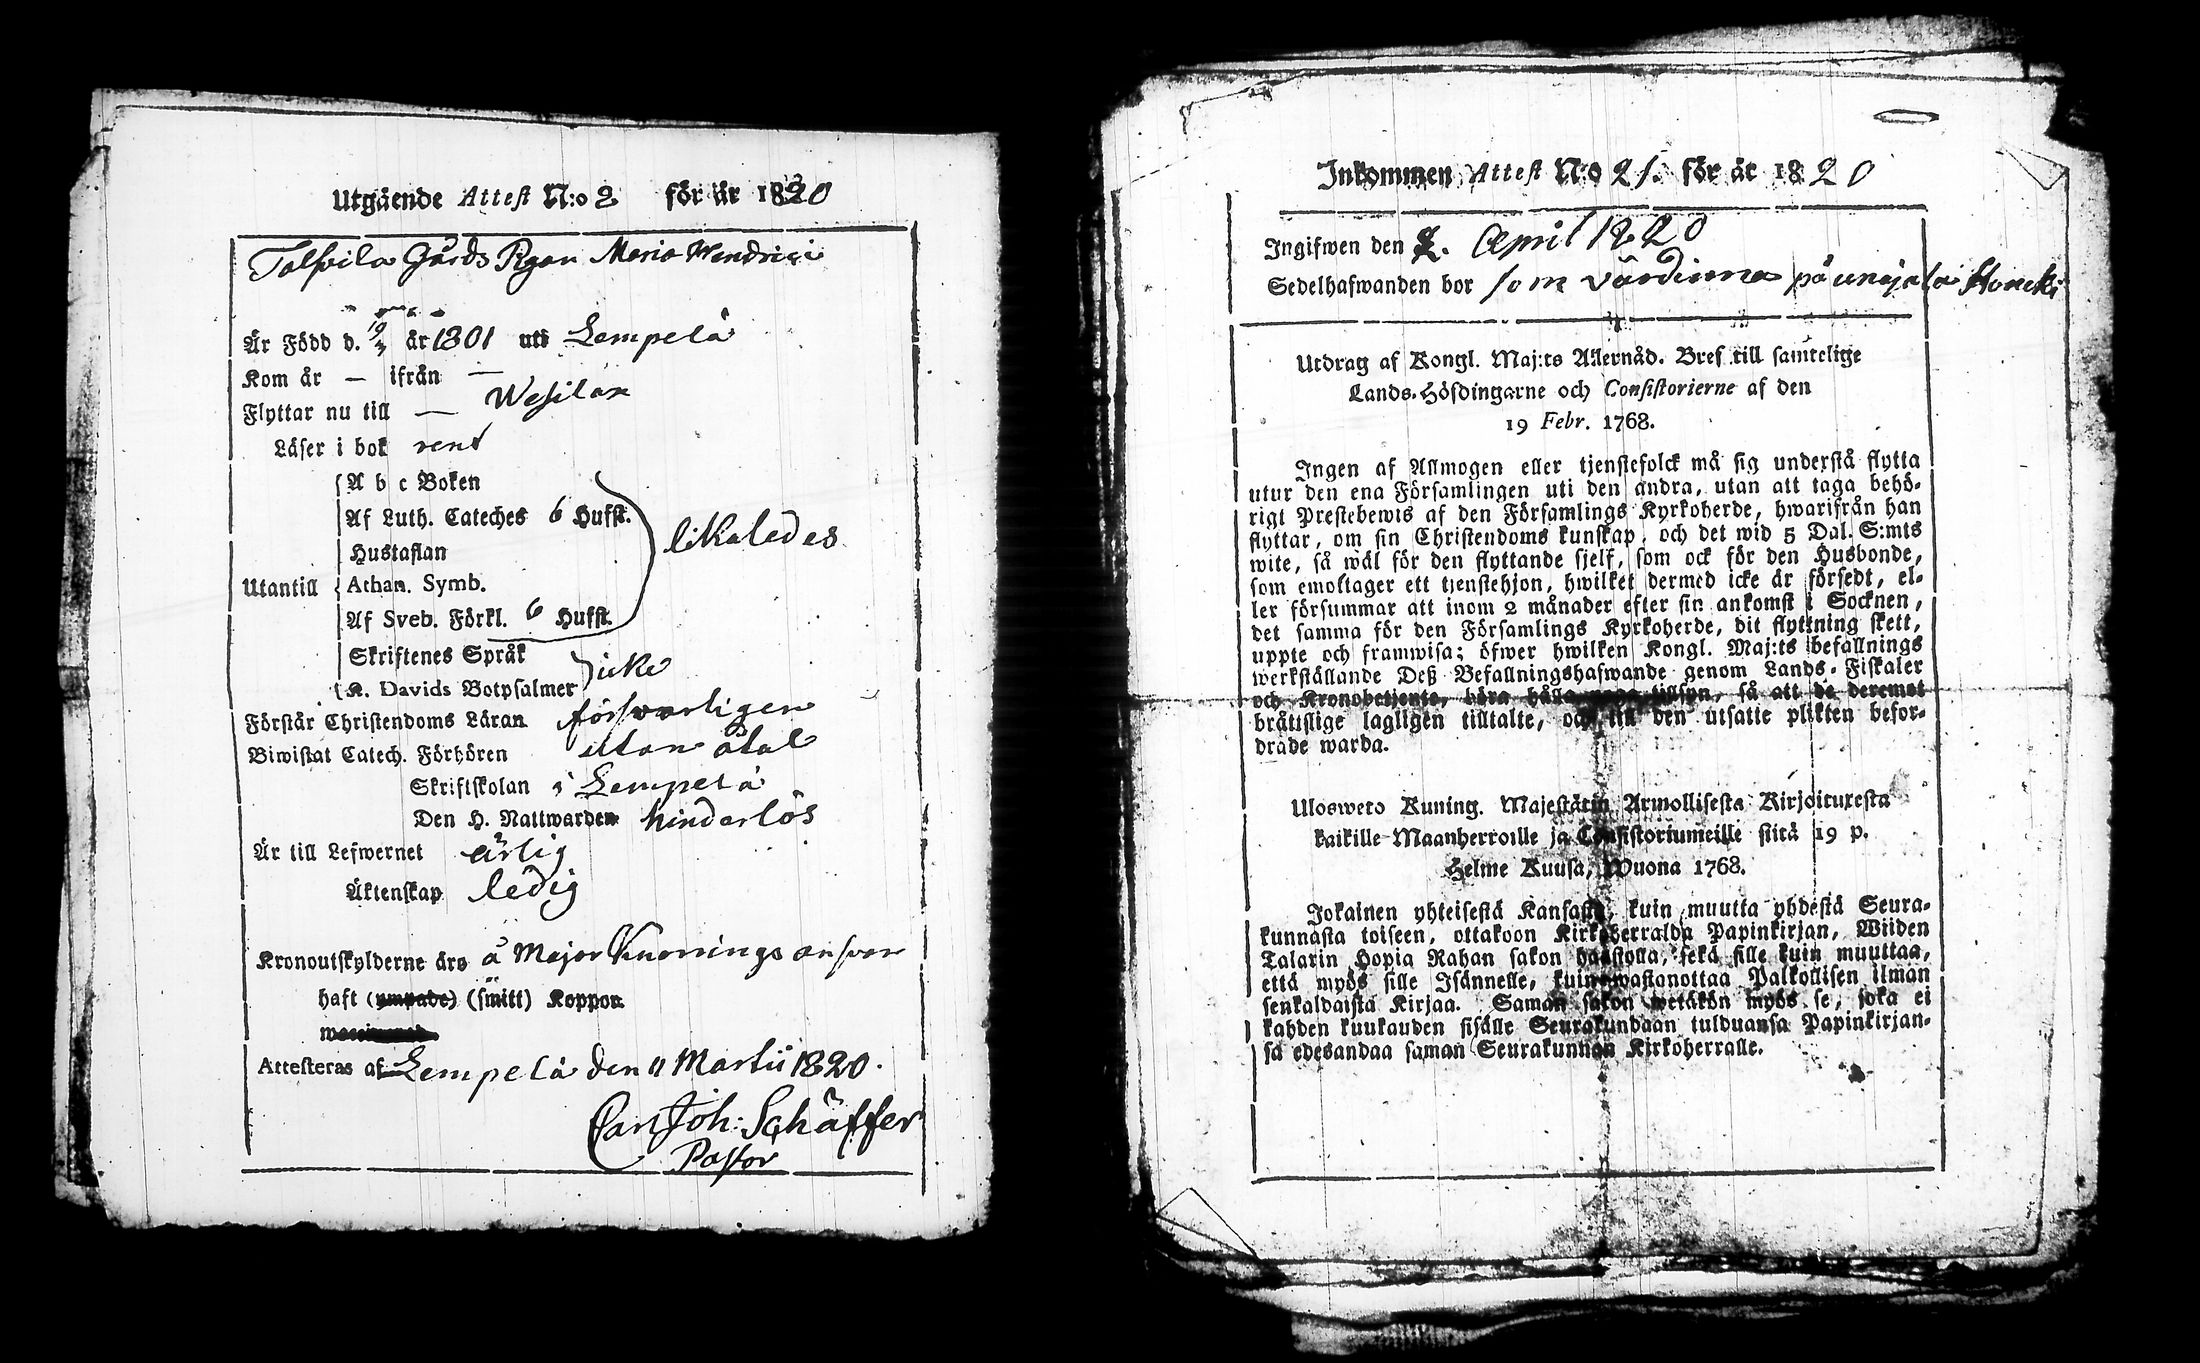 Utgående Attest N:o 2 för år 1820
Talpila Gårds Pigan Maria Hendrici
Är Född d. 19/3 år 1801 uti Lempelä
Kom år — ifrån —
Flyttar nu till — Wesilax
Läser i bok rent
A b c Boken
Af Luth. Cateches 6 Hufst.
Hustaflan
likaledes
Utantill Athan. Symb.
Af Sveb. Förkl. 6 Hufst.
Skriftenes Språk
icke
K. Davids Botpsalmer
Förstår Christendoms Läran försvarligen
Biwistat Catech. Förhören utan åtal
Skriftskolan i Lempelä
Den H. Nattwarden hinderlös
Är till Lefwernet ärlig
Äktenskap ledig
Kronoutskylderne äro å Major Knorrings ansvar
haft (ympade) (smitt) Koppor
Attesteras af Lempelä den 11 Martii 1820.
Carl Joh: Schäffer
Pastor
Inkommen Attest N:o 21. för år 1820
Ingifwen den 2. April 1820
Sedelhafwanden bor som värdinna på
Utdrag af Kongl. Maj:ts Allernåd. Bref till samtelige
Lands-Höfdingarne och Consistorierne af den
19 Febr. 1768.
Ingen af Allmogen eller tjenstefolck må sig understå flytta
utur den ena Församlingen uti den andra, utan att taga behö-
rigt Prestebewis af den Församlings Kyrkoherde, hwarifrån han
flyttar, om sin Christendoms kunskap, och det wid 5 Dal. S:mts
wite, så wäl för den flyttande sjelf, som ock för den Husbonde,
som emottager ett tjenstehjon, hwilket dermed icke är försedt, el-
ler försummar att inom 2 månader efter sin ankomst i Socknen,
det samma för den Församlings Kyrkoherde, dit flyttning skett,
uppte och framwisa; öfwer hwilken Kongl. Maj:ts befallnings
werkställande Deß Befallningshafwande genom Lands-Fiskaler
och Kronobetjente, böra hålla noga tillsyn, så att de deremot
bråttslige lagligen tilltalte, och till den utsatte plikten befor-
drade warda.
Ulosweto Kuning. Majestätin Armollisesta Kirjoituxesta
kaikille Maanherroille ja Consistoriumeille siitä 19 p.
Helme Kuusa, Wuona 1768.
Jokainen yhteisestä Kansasta, kuin muutta yhdestä Seura-
kunnasta toiseen, ottakoon Kirkoherralda Papinkirjan, Wiiden
Talarin Hopia Rahan sakon haastolla, sekä sille kuin muuttaa,
että myös sille Isännelle, kuin wastanottaa Palkollisen ilman
senkaldaista Kirjaa. Saman sakon wetäkön myös se, joka ei
kahden kuukauden sisälle Seurakundaan tulduansa Papinkirjan-
sa edesandaa saman Seurakunnan Kirkoherralle.